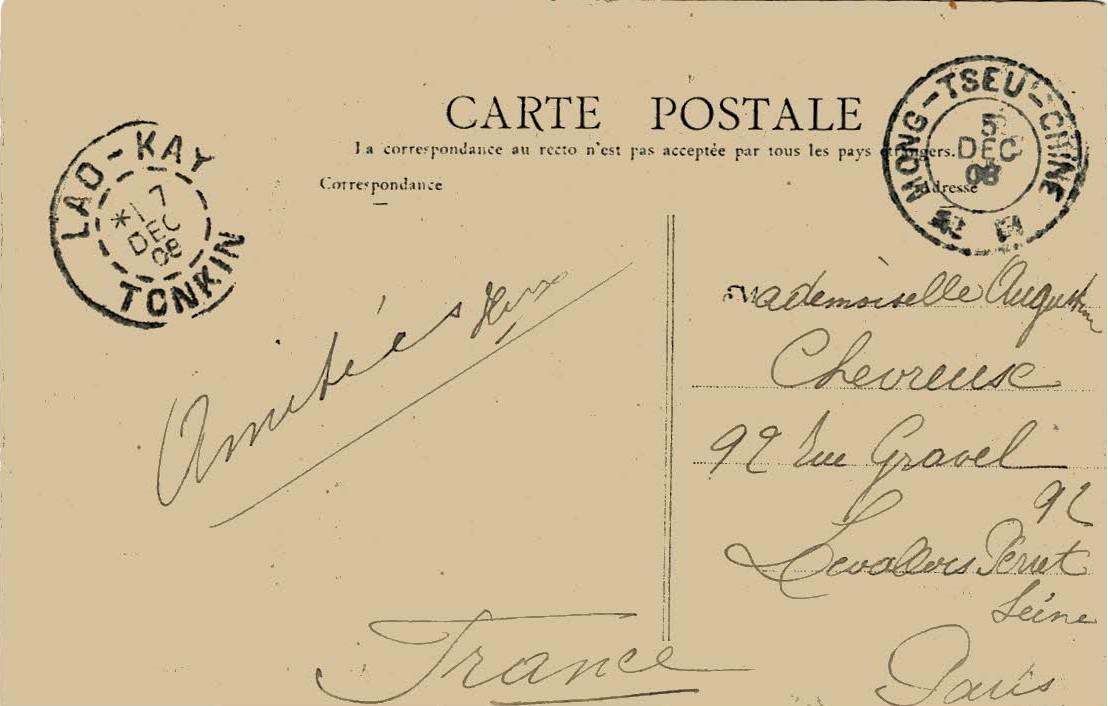 CARTE POSTALE
La correspondance au recto n'est pas acceptée par tous les pays étrangers.
Correspondance
Adresse
LAO-KAY
*17
DEC
08
TONKIN
MONG-TSEU-CHINE
5
DEC
08
Amitiées
Mademoiselle
Chevreuse
92 rue Gravel
92
Levallois Perret
Seine
Paris
France